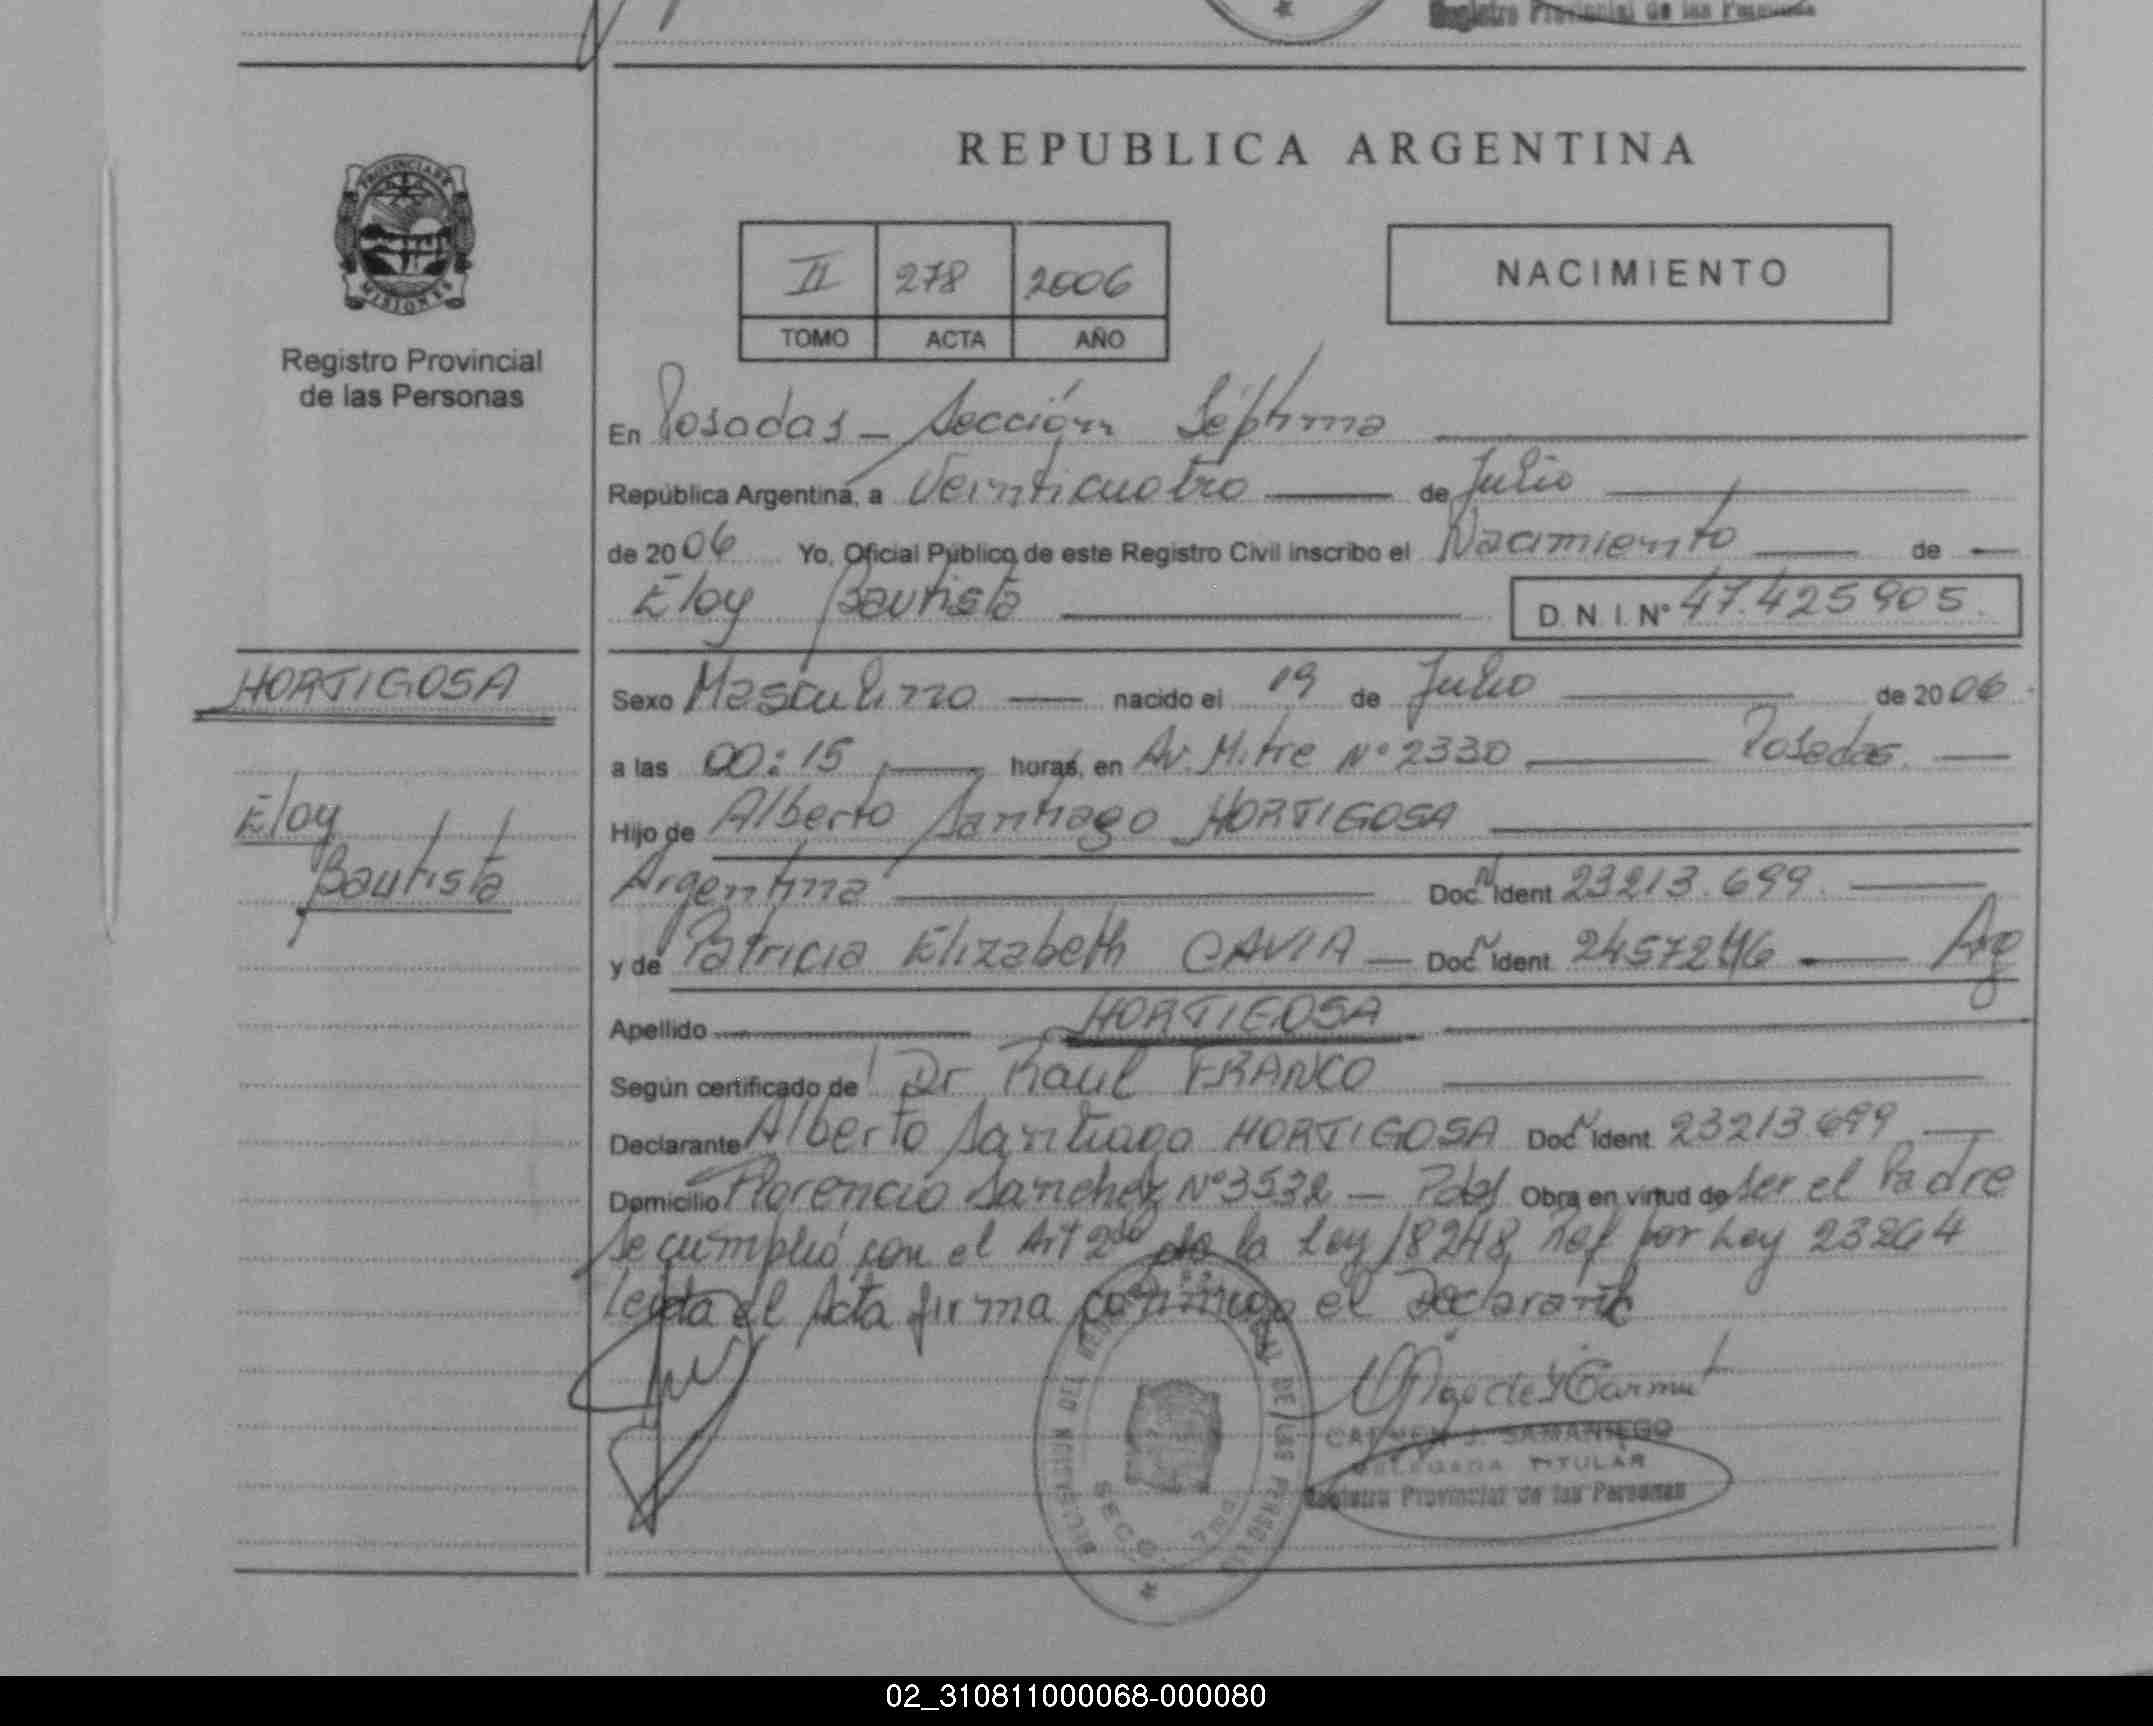 Registro Provincial de las Personas
REPUBLICA ARGENTINA
PROVINCIA DE
MISIONES
Registro Provincial
de las Personas
II 278 2006
TOMO ACTA AÑO
NACIMIENTO
En Posadas - Sección Séptima
República Argentina, a Veinticuatro de Julio
de 2006 Yo, Oficial Público de este Registro Civil inscribo el Nacimiento de
Eloy Bautista D. N. I. N° 47.425905.
HORTIGOSA
Eloy
Bautista
Sexo Masculino nacido el 19 de Julio de 2006.
a las 00:15 horas, en Av. Mitre N° 2330 Posadas.
Hijo de Alberto Santiago HORTIGOSA
Argentina Doc. N Ident 23213.699.
y de Patricia Elizabeth CAVIA - Doc. N Ident. Arg
Apellido HORTIGOSA
Según certificado de Dr Raul FRANCO
Declarante Alberto Santiago HORTIGOSA Doc. N Ident. 23213.699
Domicilio Florencio Sanchez N° 3532 - Pdas Obra en virtud de ser el Padre
Se cumplió con el Art 2do de la Ley 18248, ref por Ley 23264
Leida el Acta firma conmigo el Declarante
CARMEN J. SAMANIEGO
DELEGADA TITULAR
Registro Provincial de las Personas
02_310811000068-000080